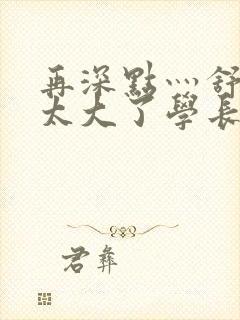 再深點灬舒
太大了學長
君彝